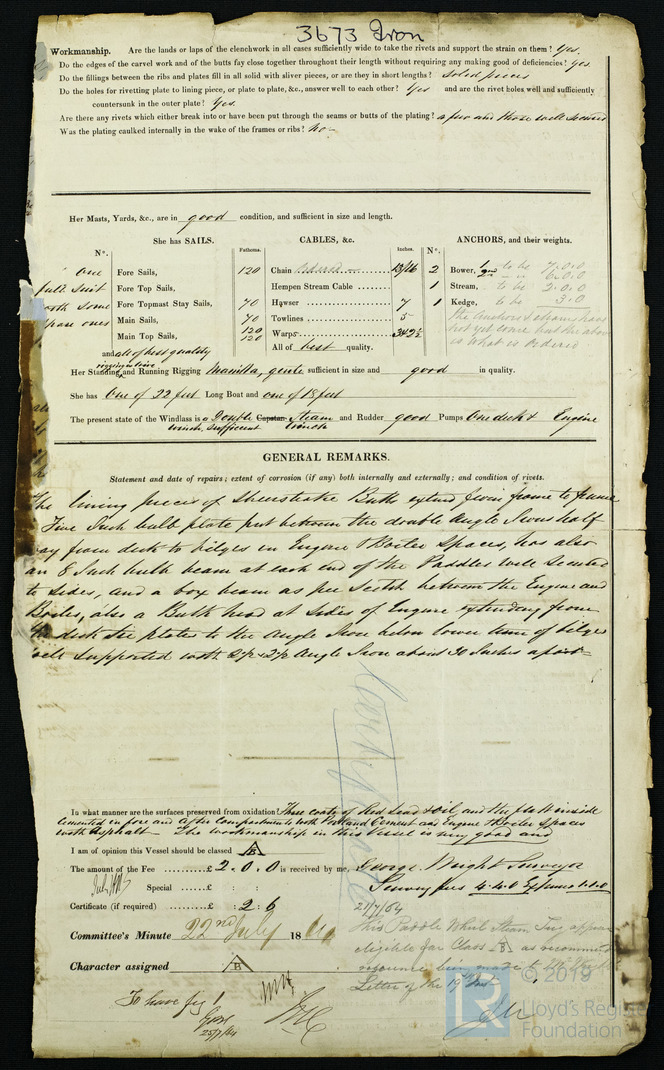 3673 Iron
Workmanship. Are the lands or laps of the clenchwork in all cases sufficiently wide to take the rivets and support the strain on them? Yes.
Do the edges of the carvel work and of the butts fay close together throughout their length without requiring any making good of deficiencies? Yes.
Do the fillings between the ribs and plates fill in all solid with sliver pieces, or are they in short lengths? solid pieces
Do the holes for rivetting plate to lining piece, or plate to plate, &c., answer well to each other? Yes and are the rivet holes well and sufficiently
countersunk in the outer plate? Yes.
Are there any rivets which either break into or have been put through the seams or butts of the plating? a few and those well secured
Was the plating caulked internally in the wake of the frames or ribs? No
Her Masts, Yards, &c., are in good condition, and sufficient in size and length.
She has SAILS. Fathoms. CABLES, &c. Inches. Nº. ANCHORS, and their weights.
Nº.
one Fore Sails, 120 Chain 13/16 2 Bower, 1 to be 7.0.0
2nd 6.0.0
full suit Fore Top Sails, Hempen Stream Cable 1 Stream, to be 2.0.0
with some Fore Topmast Stay Sails, 70 Hawser 7 1 Kedge, to be 3.0
spare ones Main Sails, 70 Towlines 5 the anchors & chains have
Main Top Sails, 120 Warps not yet come but the above
120 All of best quality. is what is ordered
and all of best quality
Her Standing and Running Rigging Manilla, quite sufficient in size and good in quality.
She has One of 22 feet Long Boat and one of 18 feet
The present state of the Windlass is a Double Capstan Steam and Rudder good Pumps One deck & Engine
winch, sufficient winch
GENERAL REMARKS.
Statement and date of repairs; extent of corrosion (if any) both internally and externally; and condition of rivets.
The lining pieces of Sheerstrake Butts extend from frame to frame
Inch bulb plate put between the double Angle Irons half
way from deck to bilges in Engine & Boiler Spaces, has also
an 8 Inch bulb beam at each end of the Paddles well secured
to sides, and a box beam as per Sketch between the Engine and
Boiler, also a Bulk head at sides of Engine extending from
the deck plates to the Angle Iron below lower turn of bilges
well supported with 2½ x 2½ Angle Iron about 30 Inches apart
Certificate
In what manner are the surfaces preserved from oxidation Three coats of Red Lead & oil, and the flat inside
cemented in fore and after compartments with Portland Cement and Engine & Boiler Spaces
with Asphalt The workmanship in this Vessel is very good and
I am of opinion this Vessel should be classed B
The amount of the Fee £ 2 . 0 . 0 is received by me, George Wright Surveyor
Special £ : : Survey fees 4.4.0 Expenses
Certificate (if required) £ : 2 : 6 21/7/64
Committee's Minute 22nd July 18 This Paddle Wheel Steam Tug appears
eligible for Class B as recommended
Character assigned B
Letter of the 19th Inst
To have fig 1
25/7/64
© 2019
LR
Lloyd's Register
Foundation